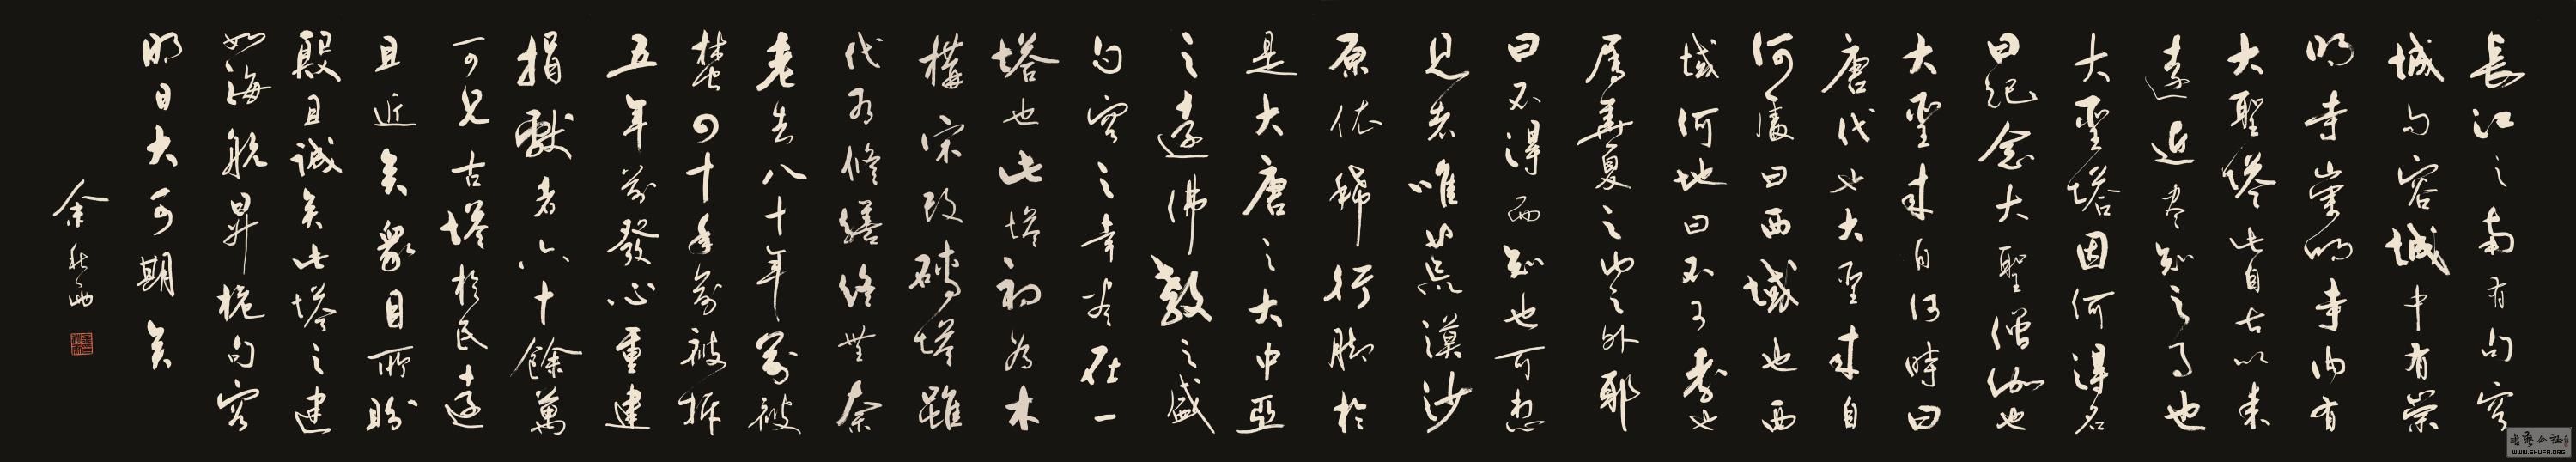 長江之南有句容
城句容城中有崇
明寺崇明寺内有
大聖塔此自古以来
遠近盡知之事也
大聖塔因何得名
曰紀念大聖僧伽也
大聖来自何時曰
唐代也大聖来自
何處曰西域也西
域何地曰不可考也
屬華夏之内之外耶
曰不得而知也可想
見者唯茫茫漠沙
原依稀行脚於
是大唐之大中亞
之遠佛教之盛
句容之幸皆在一
塔也此塔初為木
構宋改磚塔雖
代有修繕終無奈
老去八十年前被
焚四十年前被拆
五年前發心重建
捐獻者六十餘萬
可見古塔於民遠
且近矣衆目所盼
殷且誠矣此塔之建
如海航昇桅句容
明日大可期矣
余秋雨
WWW.SHUFA.ORG